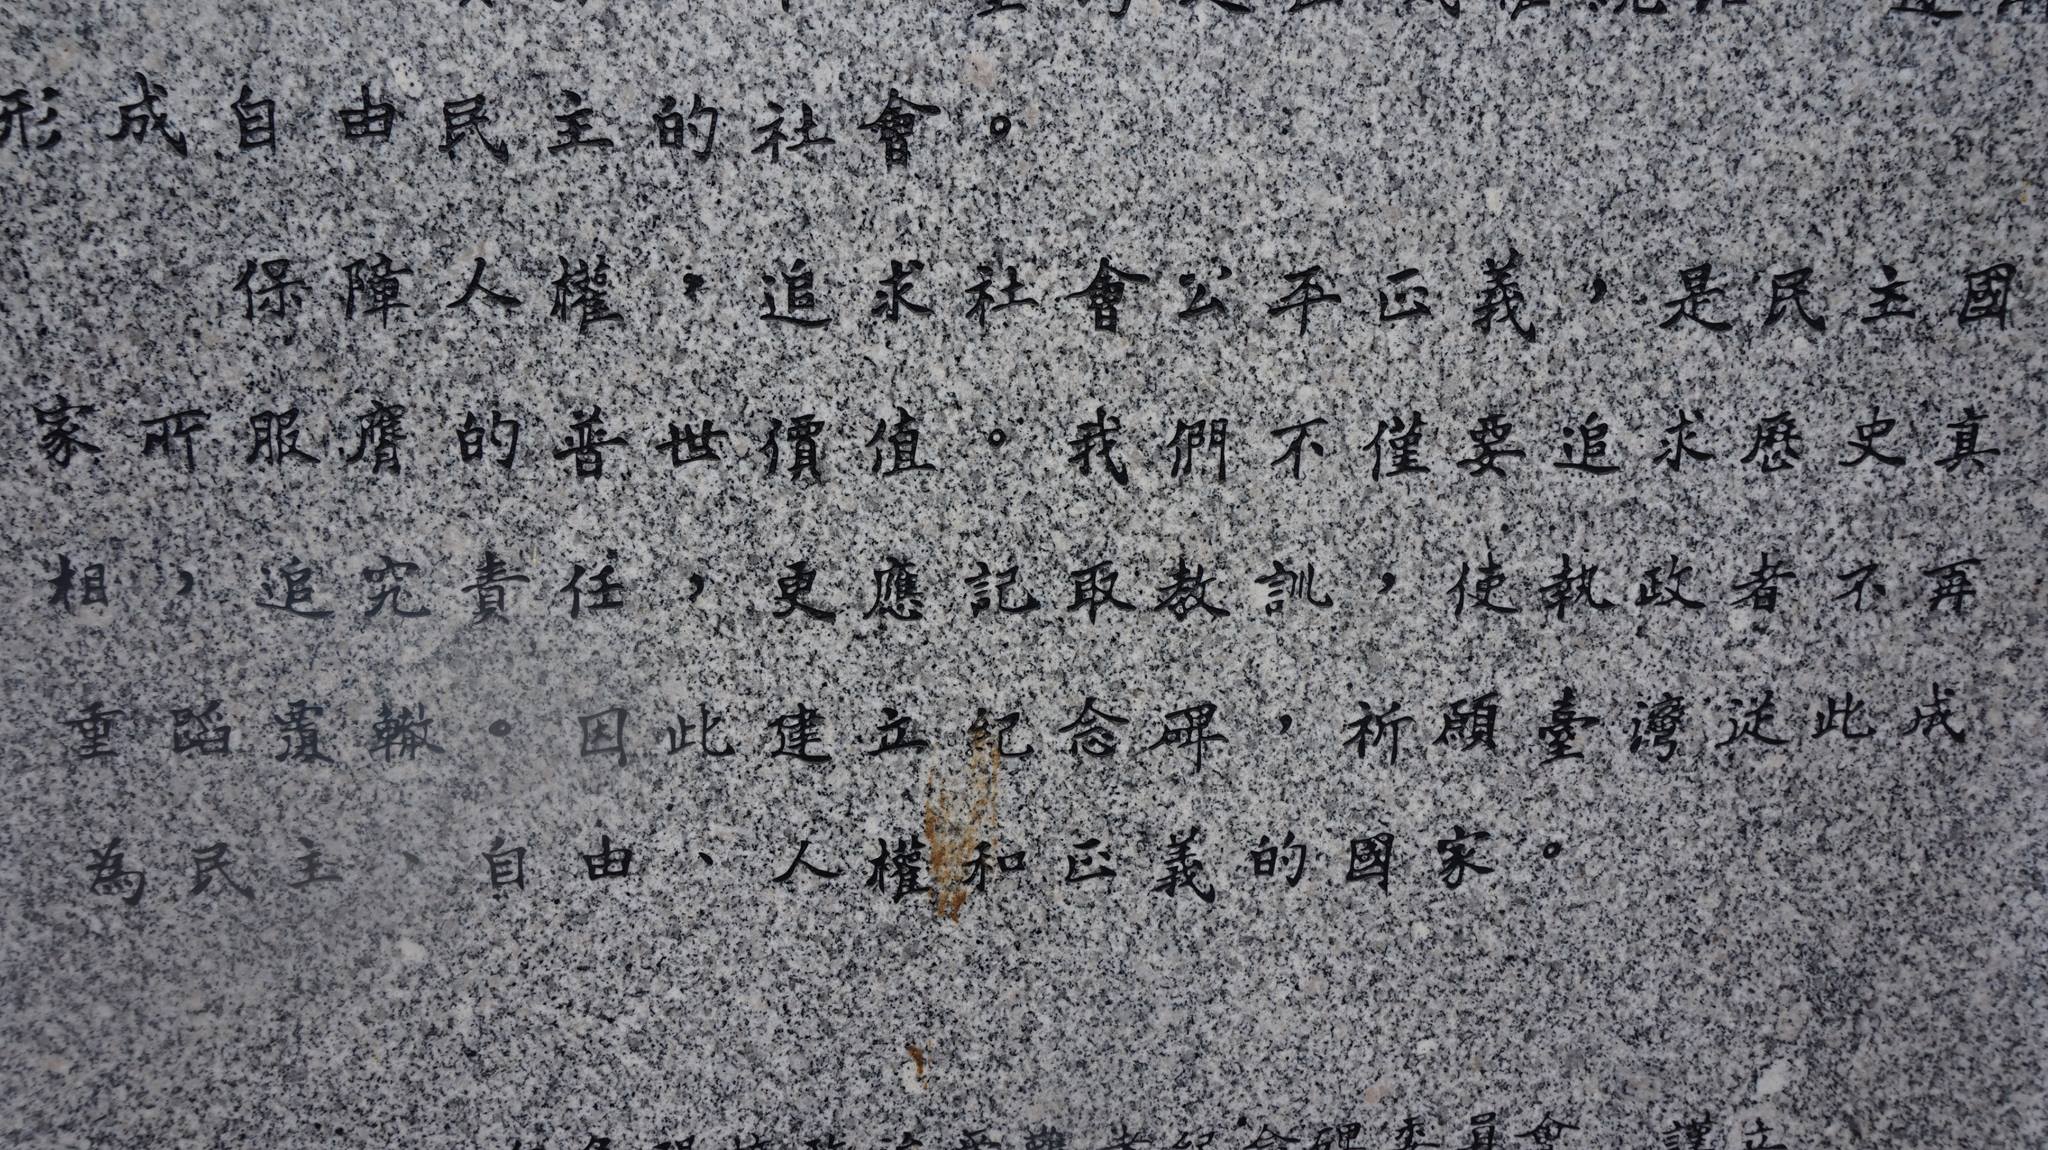 形成自由民主的社會。
保障人權，追求社會公平正義，是民主國
家所服膺的普世價值。我們不僅要追求歷史真
相，追究責任，更應記取教訓，使執政者不再
重蹈覆轍。因此建立紀念碑，祈願臺灣從此成
為民主、自由、人權和正義的國家。
政治受難者紀念碑委員會 謹立